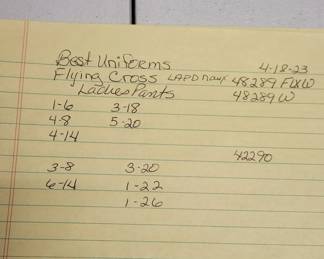 Best Uniforms 4-18-23
Flying Cross LAPD Navy 48289 FLXW
Ladies Pants 48289W
1-6 3-18
4-8 5-20
4-14
42290
3-8 3-20
6-14 1-22
1-26